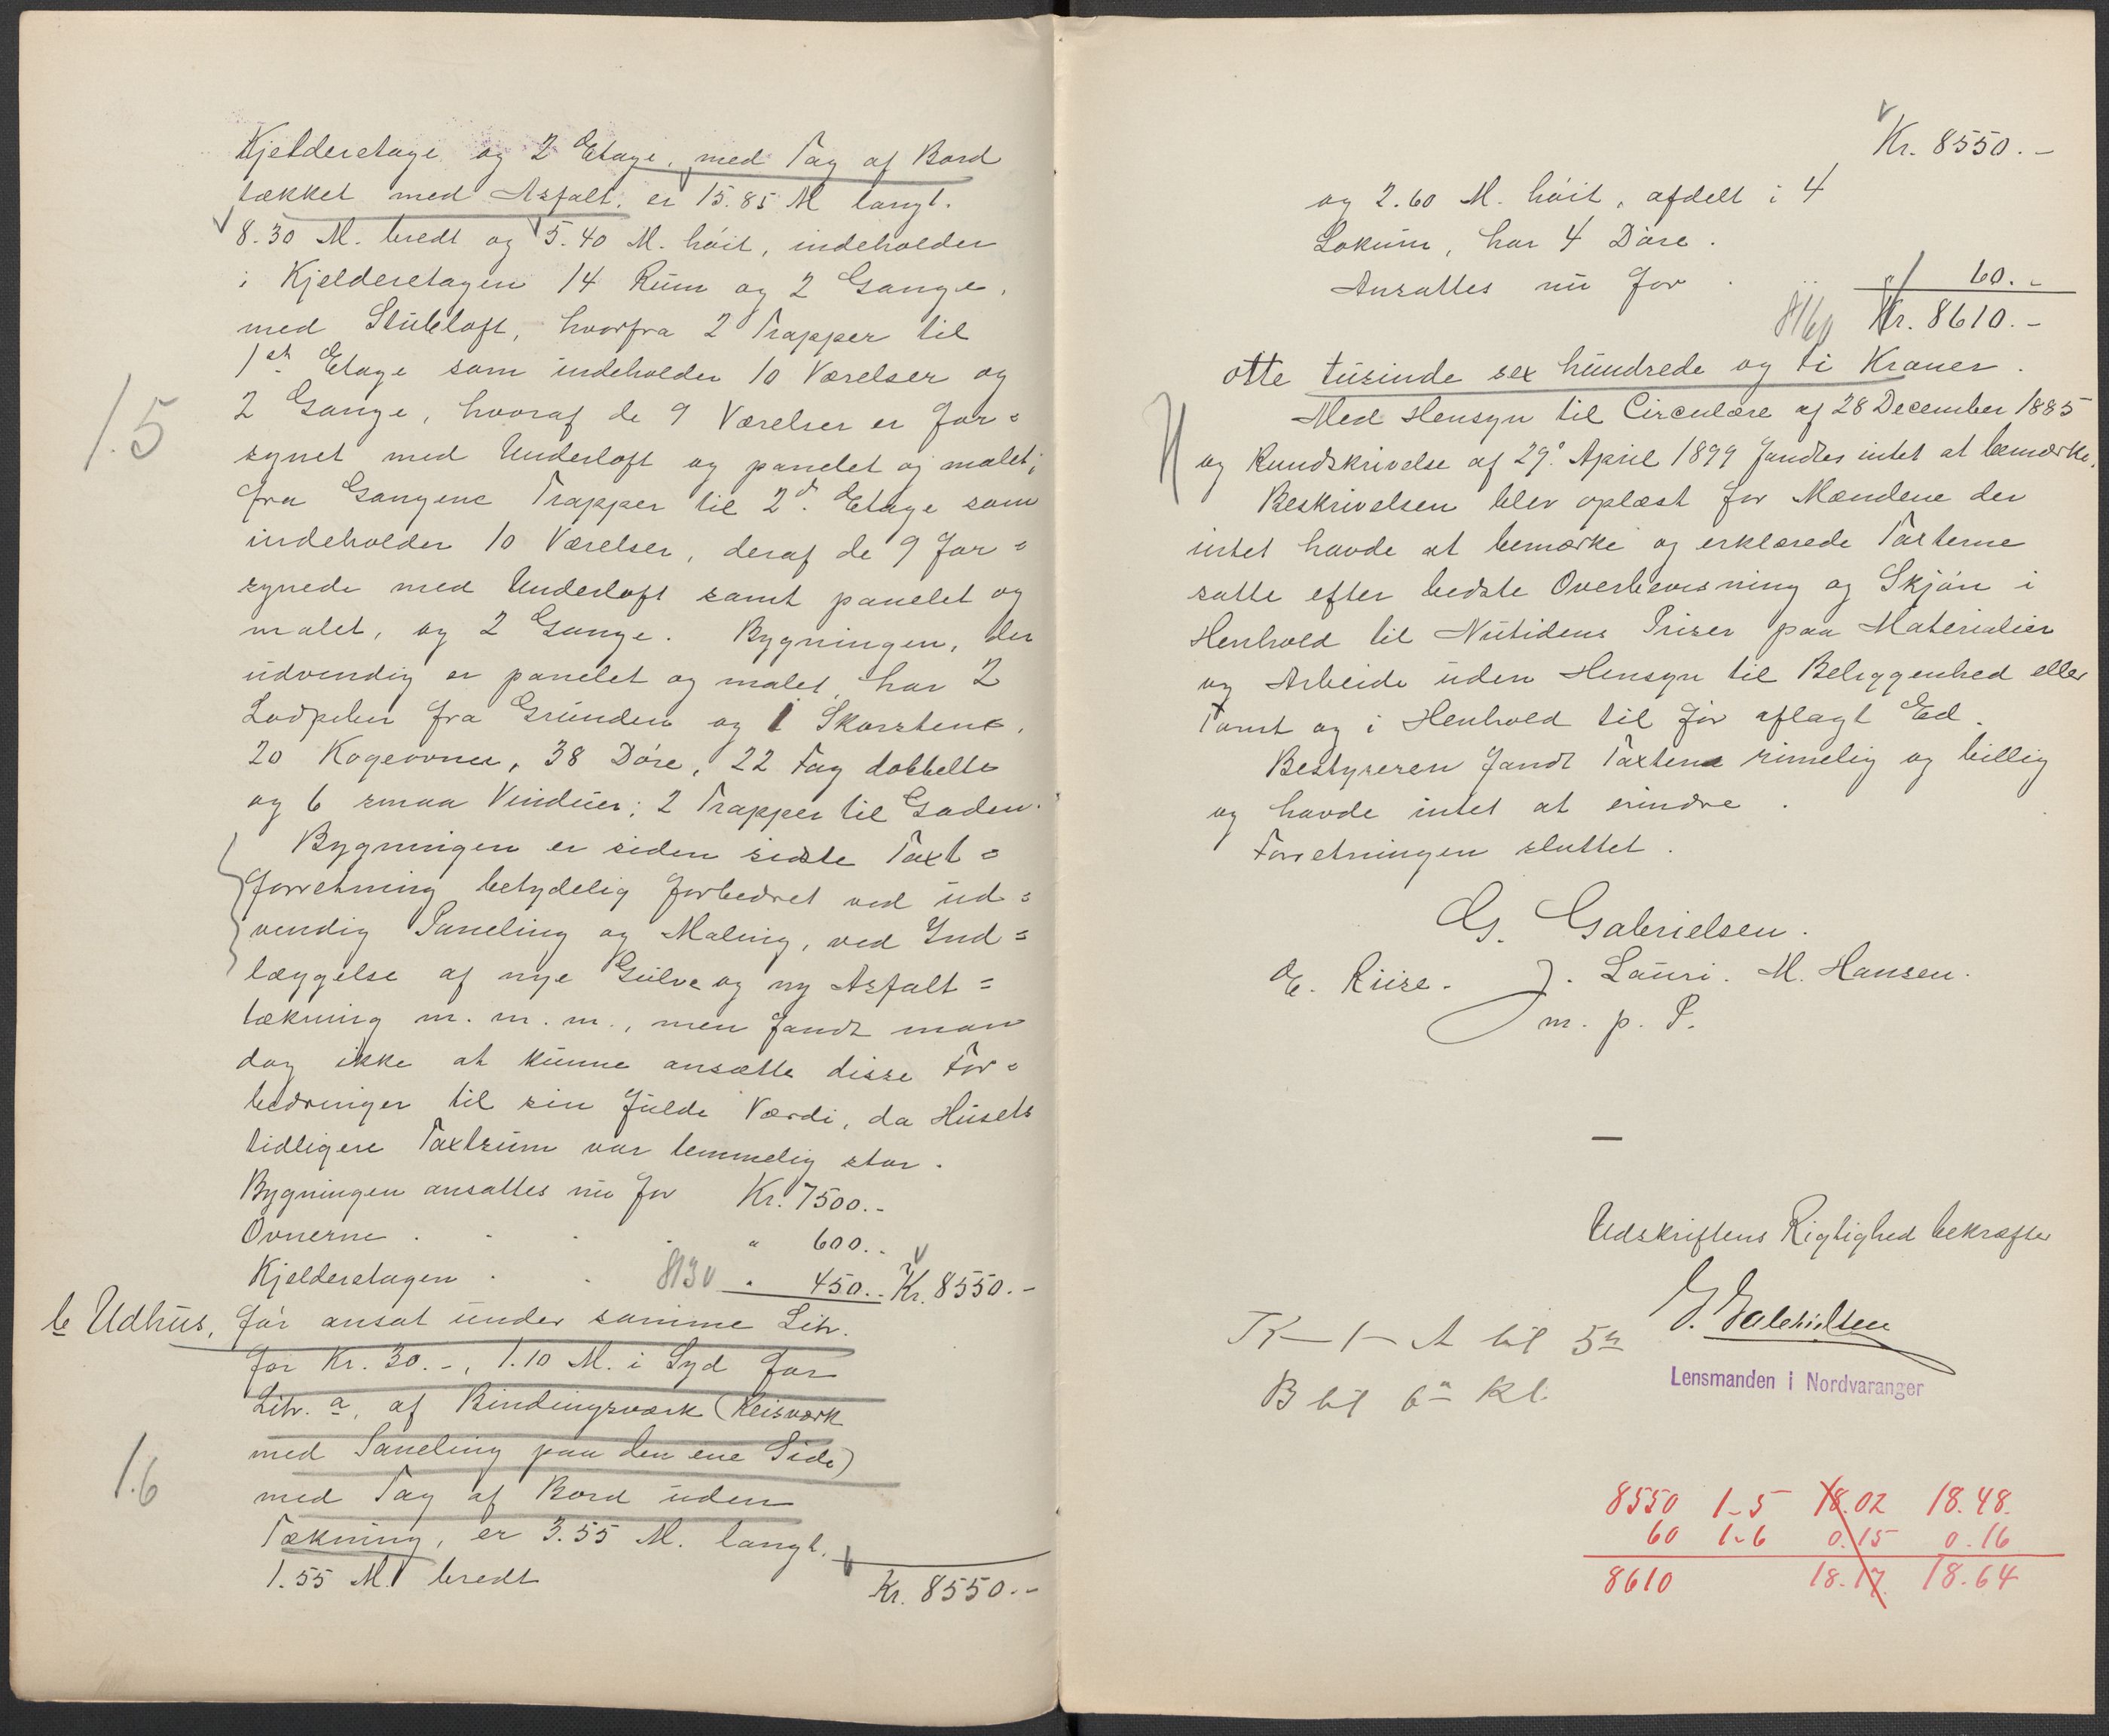 Kjelderetage og 2 Etage, med Tag af Bord
tækket med Asfalt, er 15.85 M langt.
8.30 M. bredt og 5.40 M. høit, indeholder
i Kjelderetagen 14 Rum og 2 Gange,
med Stubloft, hvorfra 2 Trapper til
1st Etage som indeholder 10 Værelser og
2 Gange, hvoraf de 9 Værelser er for=
1.5
synet med Underloft og panelet og malet;
fra Gangene Trapper til 2d. Etage som
indeholder 10 Værelser, deraf de 9 for=
synede med Underloft samt panelet og
malet, og 2 Gange. Bygningen, der
udvendig er panelet og malet, har 2
Lodpiber fra Grunden og 1 Skorsten,
20 Kogeovner, 38 Døre, 22 Fag dobbelte
og 6 smaa Vinduer; 2 Trapper til Gaden.
Bygningen er siden sidste Taxt=
forretning betydelig forbedret ved ud=
vendig Paneling og Maling, ved Ind=
læggelse af nye Gulve og ny Asfalt=
tækning m. m. m., men fandt man
dog ikke at kunne ansætte disse For=
bedringer til sin fulde Værdi, da Husets
tidligere Taxtsum var temmelig stor.
Bygningen ansattes nu for Kr. 7500.-
Ovnerne . . . . " 600.-
Kjelderetagen . . 8130 " 450.- Kr. 8550.-
b Udhus, før ansat under samme Litr.
for Kr. 30.-, 1.10 M. i Syd for
Litr. a, af Bindingsværk (Reisværk
med Paneling paa den ene Side)
1.6
med Tag af Bord uden
Tækning, er 3.55 M. langt,
1.55 M. bredt
Kr. 8550.-
Kr. 8550.-
og 2.60 M. høit, afdelt i 4
Lokum, har 4 Døre.
Ansattes nu for . . . " 60.-
8160 Kr. 8610.-
otte tusinde sex hundrede og ti Kroner.
Med Hensyn til Circulære af 28 December 1885
og Rundskrivelse af 29. April 1899 fandtes intet at bemærke.
Beskrivelsen blev oplæst for Mændene der
intet havde at bemærke og erklærede Taxterne
satte efter bedste Overbevisning og Skjøn i
Henhold til Nutidens Priser paa Materialier
og Arbeide uden Hensyn til Beliggenhed eller
Tomt og i Henhold til før aflagt Ed.
Bestyreren fandt Taxten rimelig og billig
og havde intet at erindre.
Forretningen sluttet.
G. Gabrielsen.
E. Riise. J. Lauri. M. Hansen.
m. p. P.
—
Udskriftens Rigtighed bekræfter
G. Gabrielsen
Lensmanden i Nordvaranger
A til 5te
B til 6te Kl.
8550 1-5 18.02 18.48.
60 1-6 0.15 0.16
8610 18.17 18.64